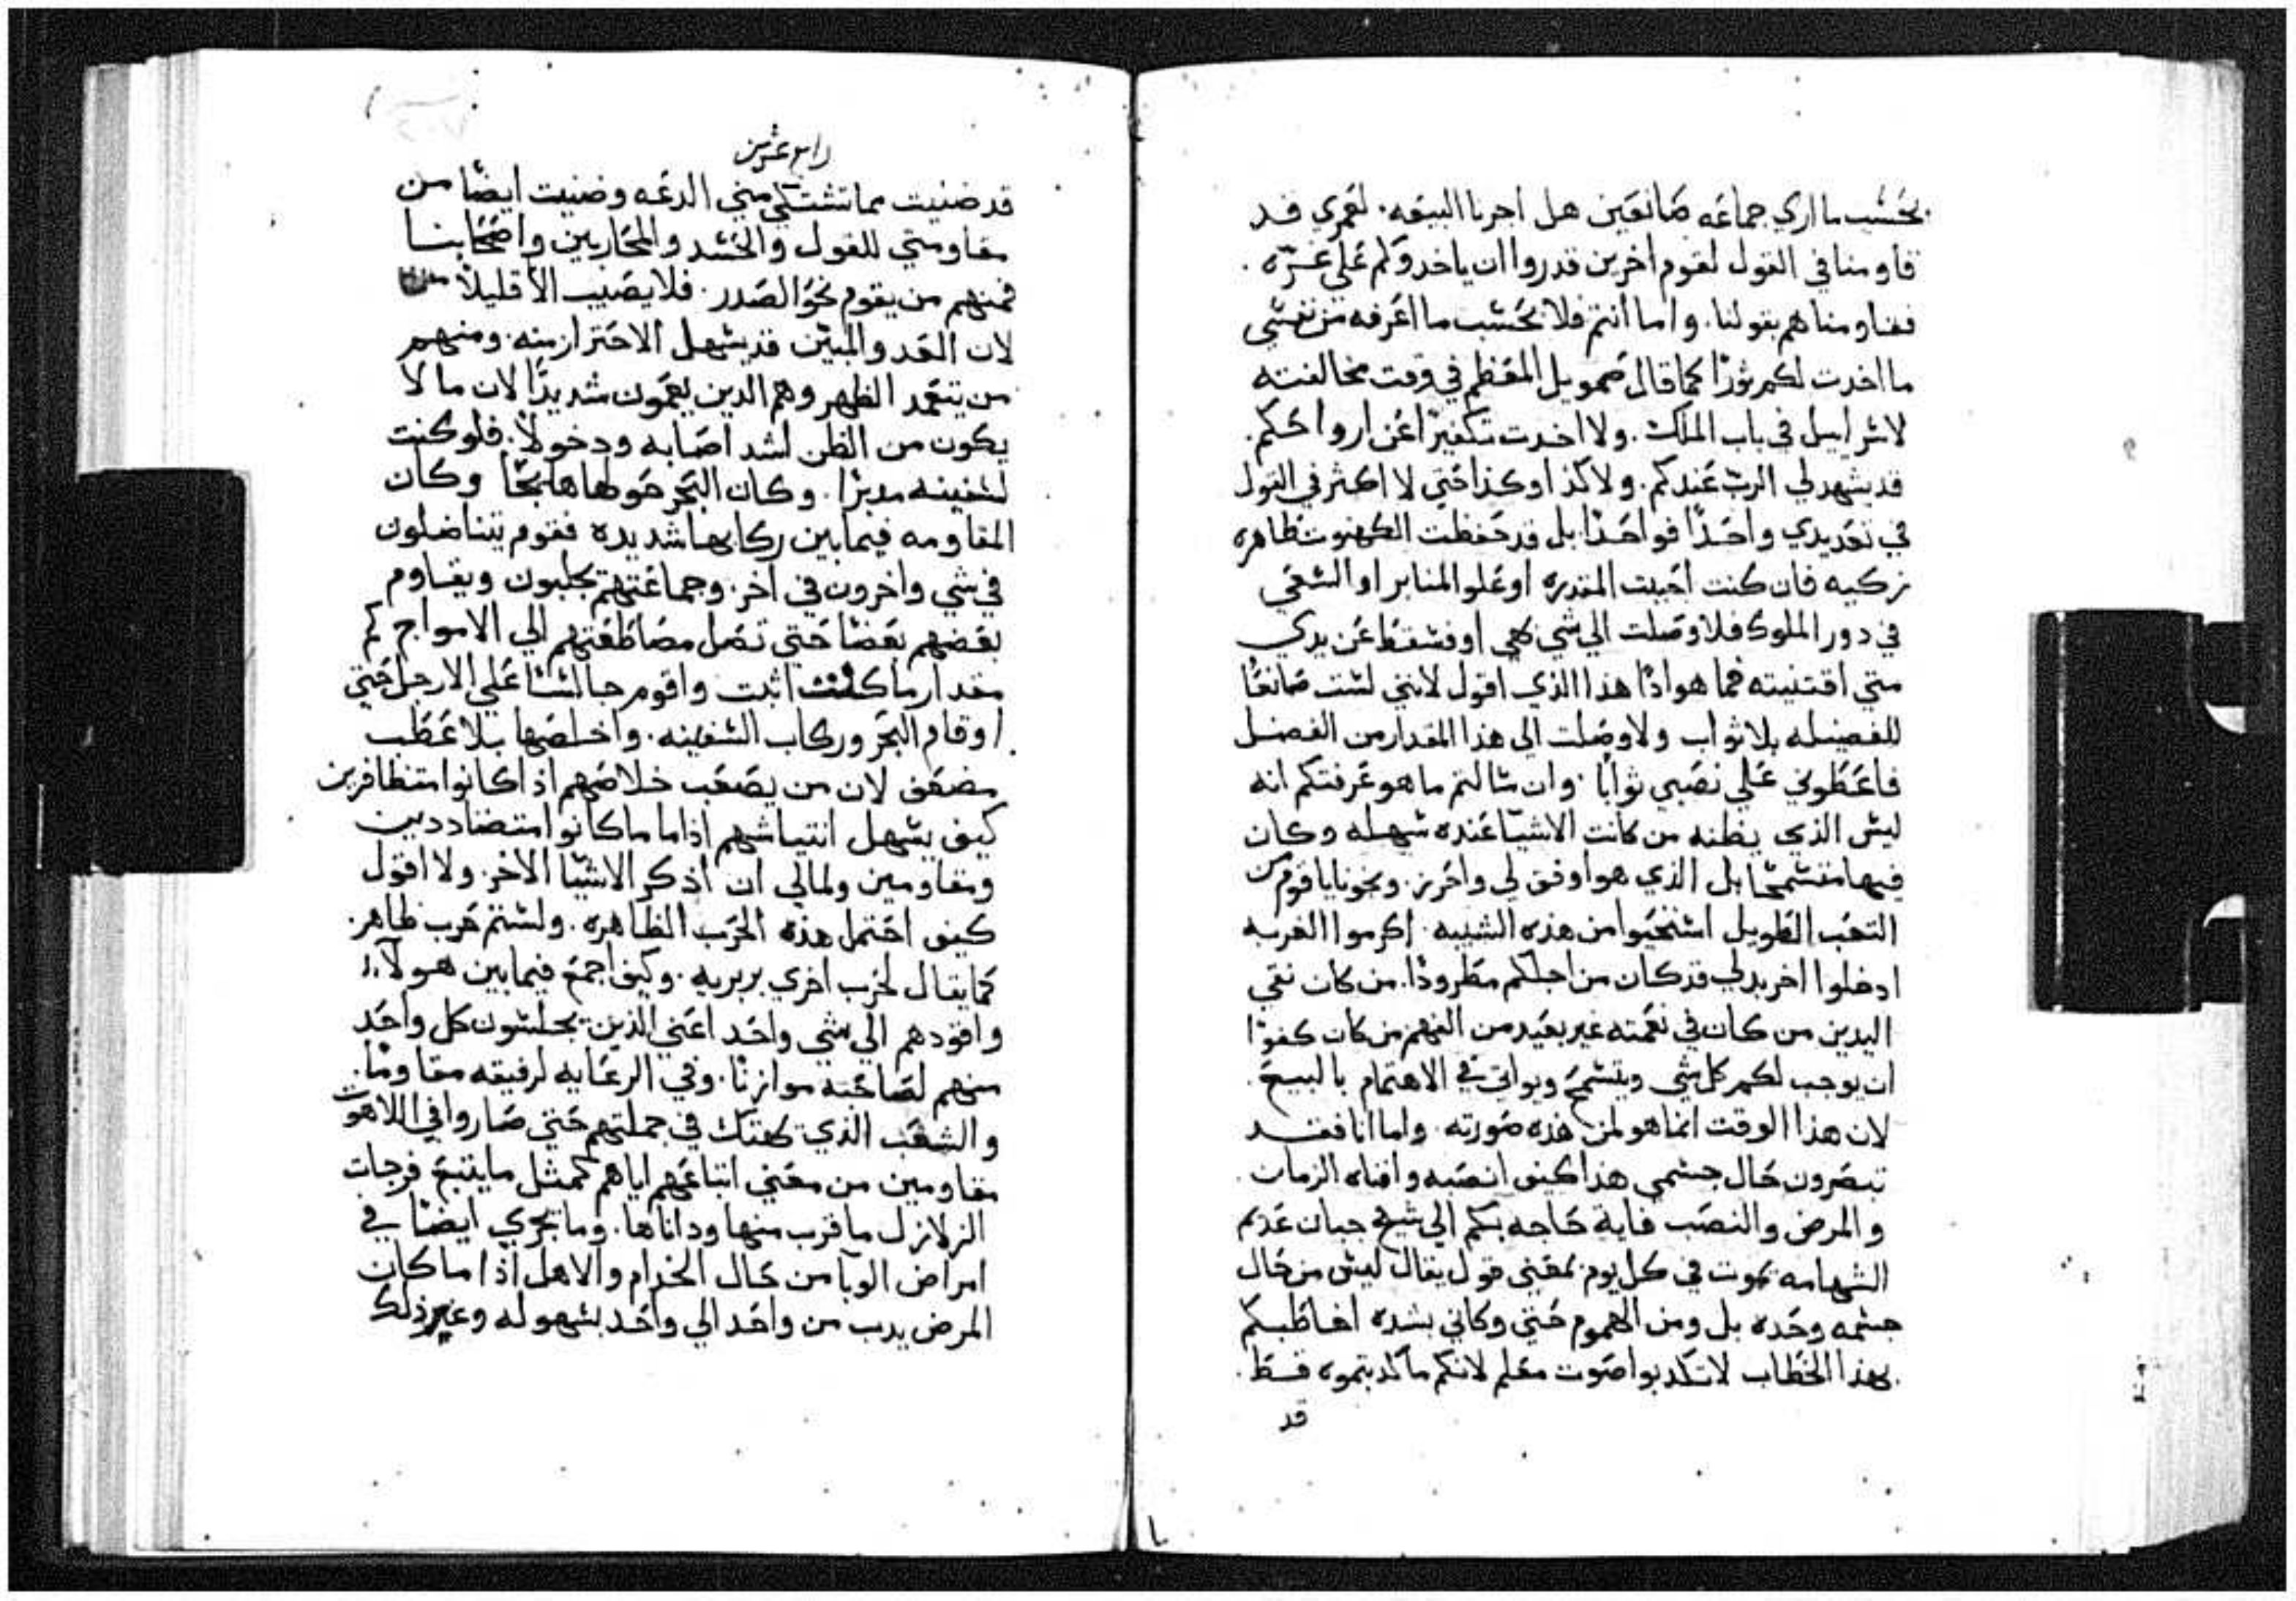 بحسب ما اري جماعه صانعين هل اجرنا البيعه. لعمري قد
قاومنا في القول لقوم اخرين قدروا ان ياخدوكم علي غره.
فقاومناهم بقولنا. واما انتم فلا بحسب ما اعرفه من نفسي
ما اخدت لكم ثورًا كما قال صمويل المعظم في وقت مخالفته
لاسراييل في باب الملك. ولا اخدت تكفيرًا عن ارواحكم.
قد يشهد لي الرب عندكم. ولا كذا وكذا حتي لا اكثر في القول
في تعديدي واحدًا فواحدًا بل قد حفظت الكهنوت ظاهره
زكيه فان كنت احببت المقدره او علو المنابر او السعي
في دور الملوك فلا وصلت الي شي بهي او فسقط عن يدي
متي اقتنيته فما هو اذًا هذا الذي اقول لانني لست صانعًا
للفضيله بلا ثواب ولا وصلت الي هذا المقدار من الفضل
فاعطوني علي تعبي ثوابًا. وان سالتم ما هو عرفتكم انه
ليس الذي يظنه من كانت الاشيا عنده سهله وكان
فيها متسمحًا بل الذي هو اوفق لي واحرز. ونحونا يا قوم من
التعب الطويل استحيوا من هذه الشيبه. اكرموا الغربه
ادخلوا اخر بدلي قد كان من اجلكم مطرودًا. من كان نقي
اليدين من كان في نغمته غير بعيد من الفهم من كان كفوًا
ان يوجب لكم كل شي ويتسمح ويواتي في الاهتمام بالبيع.
لان هذا الوقت انما هو لمن هذه صورته. واما انا فقد
تبصرون حال جسمي هذا كيف اتعبه وافناه الزمان.
والمرض والنصب فاية حاجه بكم الي شيخ جبان عديم
الشهامه يموت في كل يوم بمعني قول يقال ليس من حال
جسمه وحده بل ومن الهموم حتي وكاني بشده اخاطبكم
بهذا الخطاب لا تكدبوا صوت معلم لانكم ما كدبتموه قط.
قد
رابع عشرين
قد ضنيت مما تشتكي مني الدعه وضنيت ايضًا من
مقاومتي للقول والحسد والمحاربين واصحابنا
فمنهم من يقوم نحو الصدر. فلا يصيب الا قليلًا
لان العدو المبين قد يسهل الاحتراز منه. ومنهم
من يتعمد الظهر وهم الدين يغمون شديدًا لان ما لا
يكون من الظن اشد اصابه ودخولًا. فلو كنت
لسفينه مدبرًا. وكان البحر حولها هايجًا وكان
المقاومه فيما بين ركابها شديده فقوم يتناضلون
في شي واخرون في اخر. وجماعتهم يجلبون ويقاوم
بعضهم بعضًا حتي تصل مضاططتهم الي الامواج كم
مقدار ما كنت اثبت واقوم جالسًا علي الارجل حتي
اوقام البحر وركاب السفينه. واخلصها بلا عطب
مضعف لان من يصعب خلاصهم اذا كانوا متظافرين
كيف يسهل انتياشهم اذا ما كانوا متضاددين
ومقاومين ولمالي ان اذكر الاشيا الاخر. ولا اقول
كيف احتمل هذه الحرب الظاهره. ولستم حرب ظاهر.
كما يقال لحرب اخري بربريه. وكيف اجمع فيما بين هولآء
واقودهم الي شي واحد اعني الذين يجلسون كل واحد
منهم لصاحبه موازنًا. وفي الرعايه لرفيقه مقاومًا.
والشعب الذي يهتك في جملتهم حتي صاروا في اللاهوت
مقاومين من معني اتباعهم اياهم كمثل ما يتبع فرجات
الزلازل ما قرب منها وداناها. وما يجري ايضًا في
امراض الوبا من حال الخدام والاهل اذا ما كان
المرض يدب من واحد الي واحد بسهوله وغير ذلك